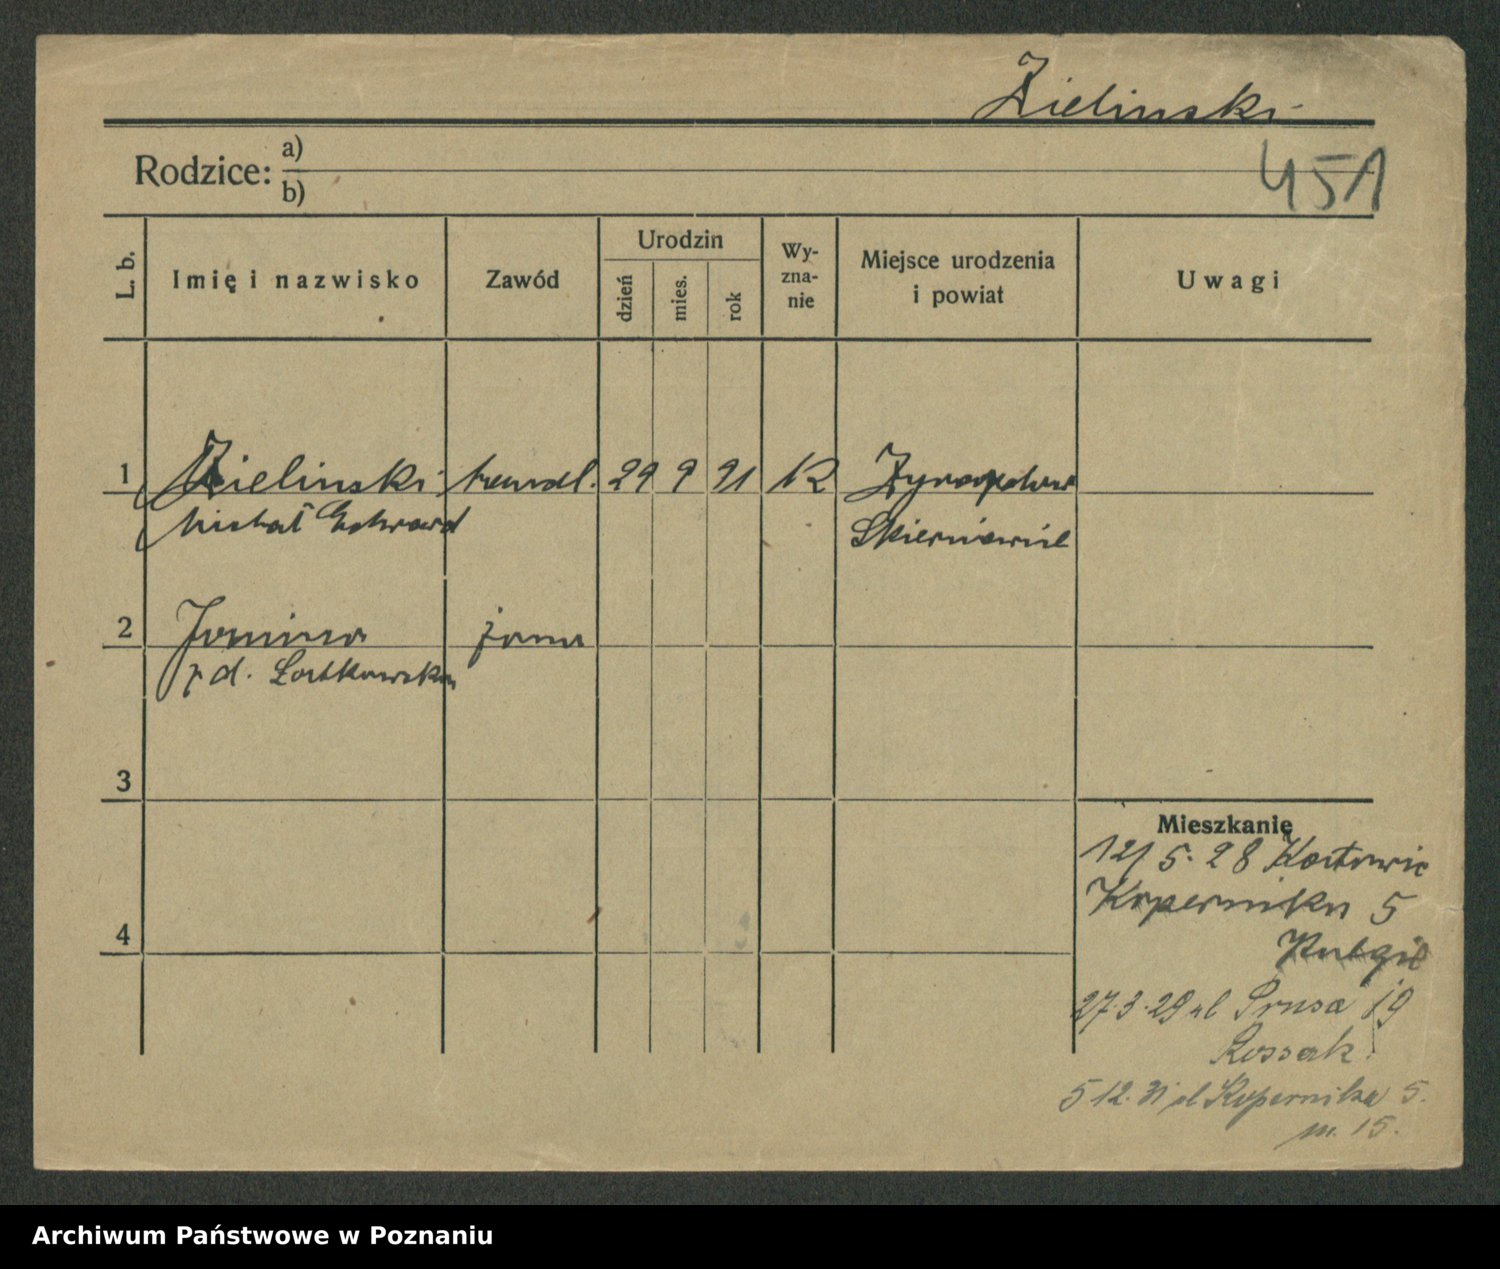 Zielinski
Rodzice: a)
b)
451
L. b.
Imię i nazwisko
Zawód
Urodzin
dzień
mies.
rok
Wy-
zna-
nie
Miejsce urodzenia
i powiat
Uwagi
1 Zielinski handl. 29 9 91 R Zyrardow
Michał Edward Skierniewice
2 Janina żona
3
Mieszkanie
12/ 5. 28
Kopernika 5
4
27.3.29 ul Prusa 19
Kossak
5 12. 31 ul Kopernika 5.
m. 15.
Archiwum Państwowe w Poznaniu